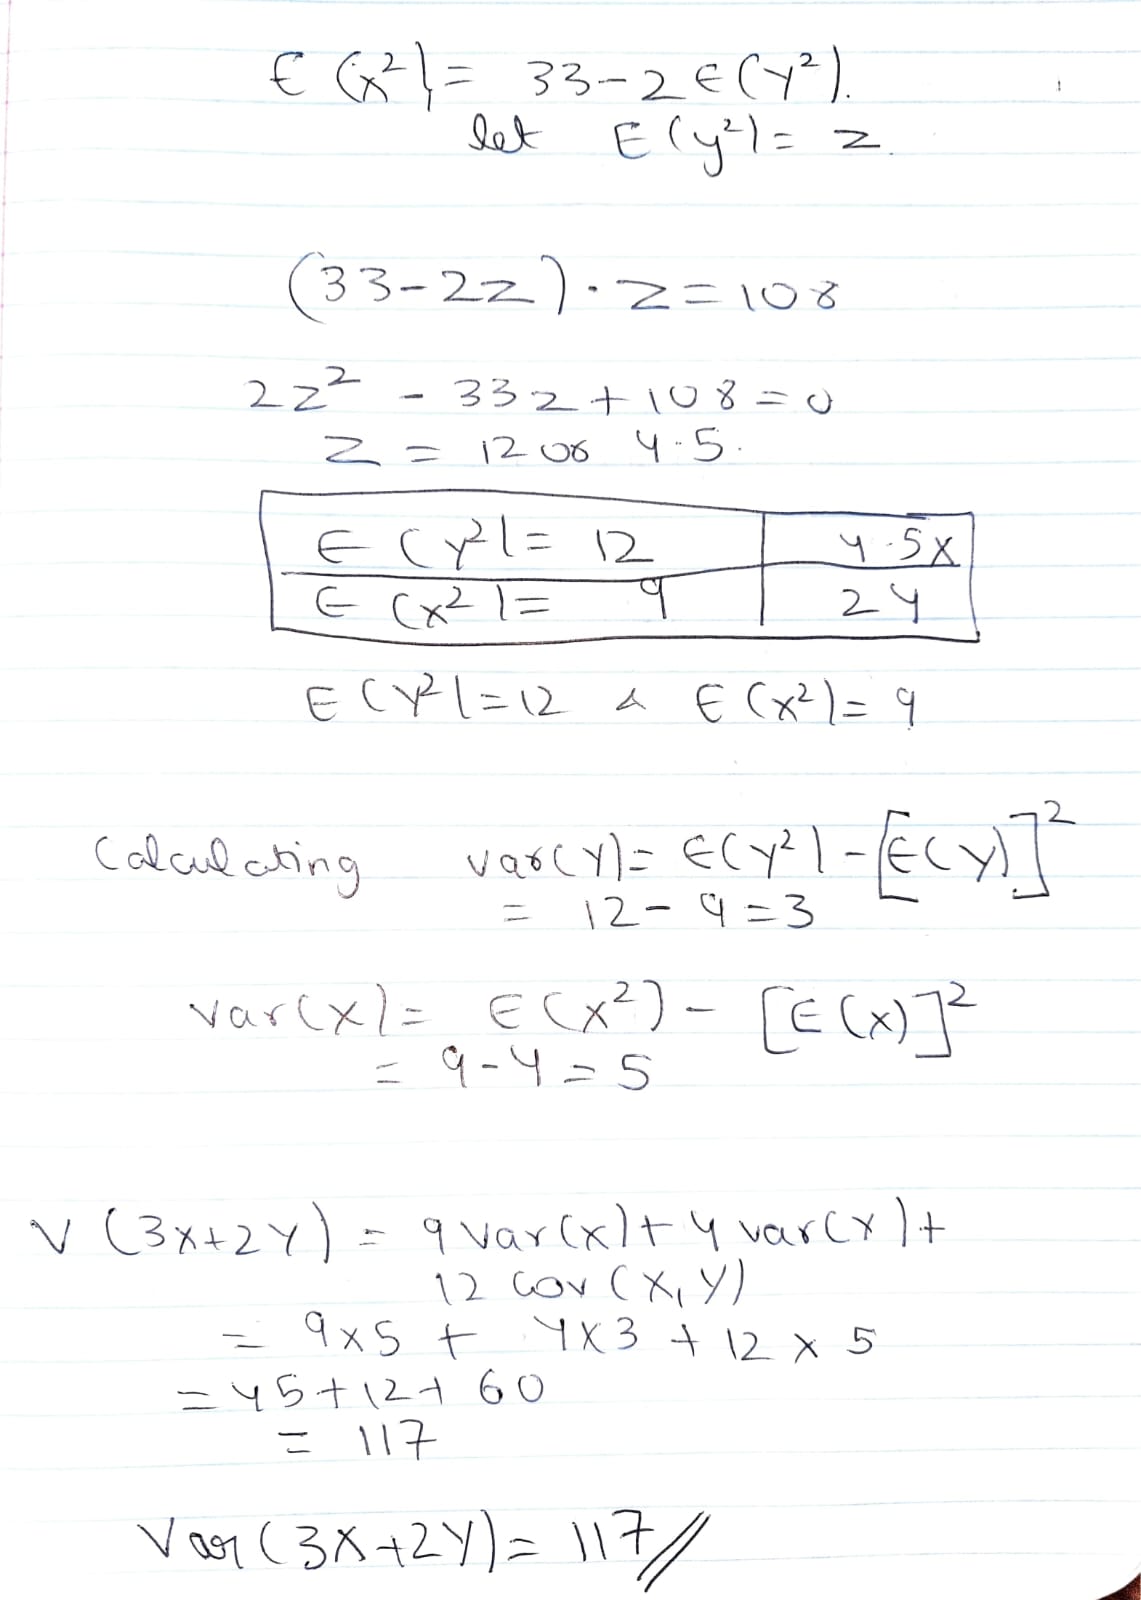 E (x²) = 33-2E(Y²).
let E(y²)= z.
(33-2z)·z=108
2z² - 33z+108=0
z = 12 or 4.5.
E (Y²)= 12 4.5x
E (x²)= 9 24
E(Y²)=12 & E(x²)= 9
Calculating var(Y)= E(Y²)-[E(Y)]²
= 12-9=3
var(x)= E(x²)- [E(x)]²
= 9-4=5
V (3x+2Y) = 9 var(x)+4 var(x)+
12 Cov (X,Y)
= 9x5 + 4x3 + 12 x 5
=45+12+60
= 117
Var(3X+2Y)= 117//